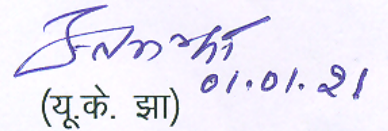 01.01.21
(यू.के. झा)